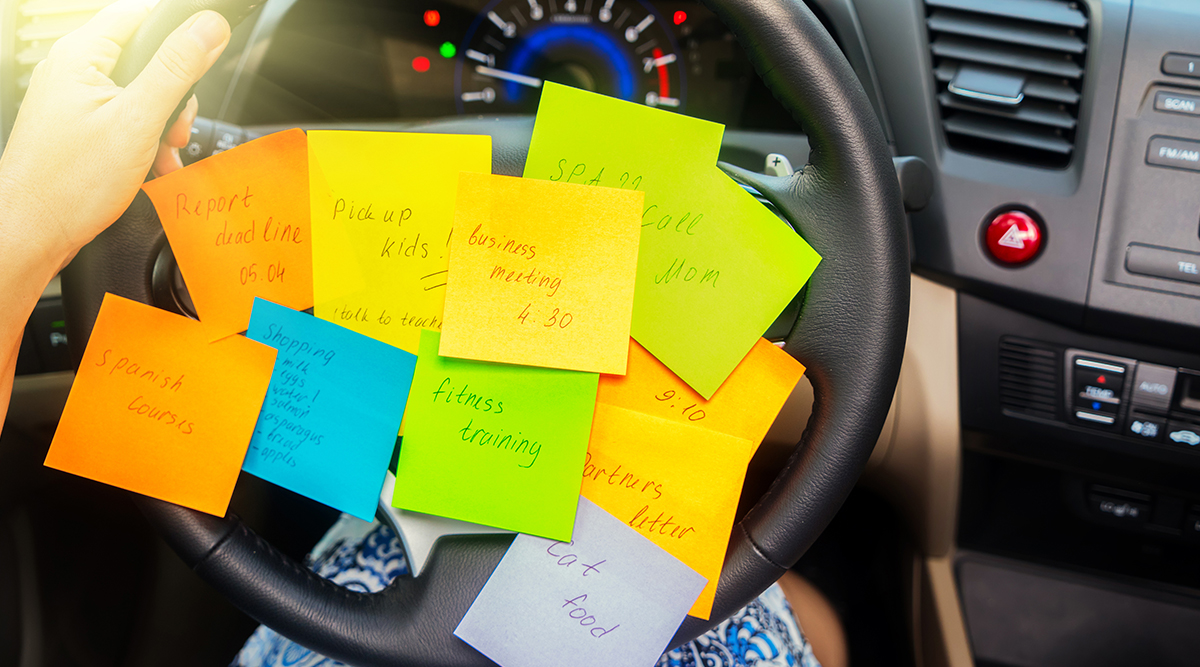 Report
deadline
05.04
Pick up
kids!
talk to
business
meeting
4:30
SPA ??
Call
Mom
Spanish
courses
Shopping
milk
eggs
water!
salmon
asparagus
- bread
- apples
fitness
training
9:10
Partners
letter
Cat
food
SCAN
FM/AM
TEL
TEMP
AUTO